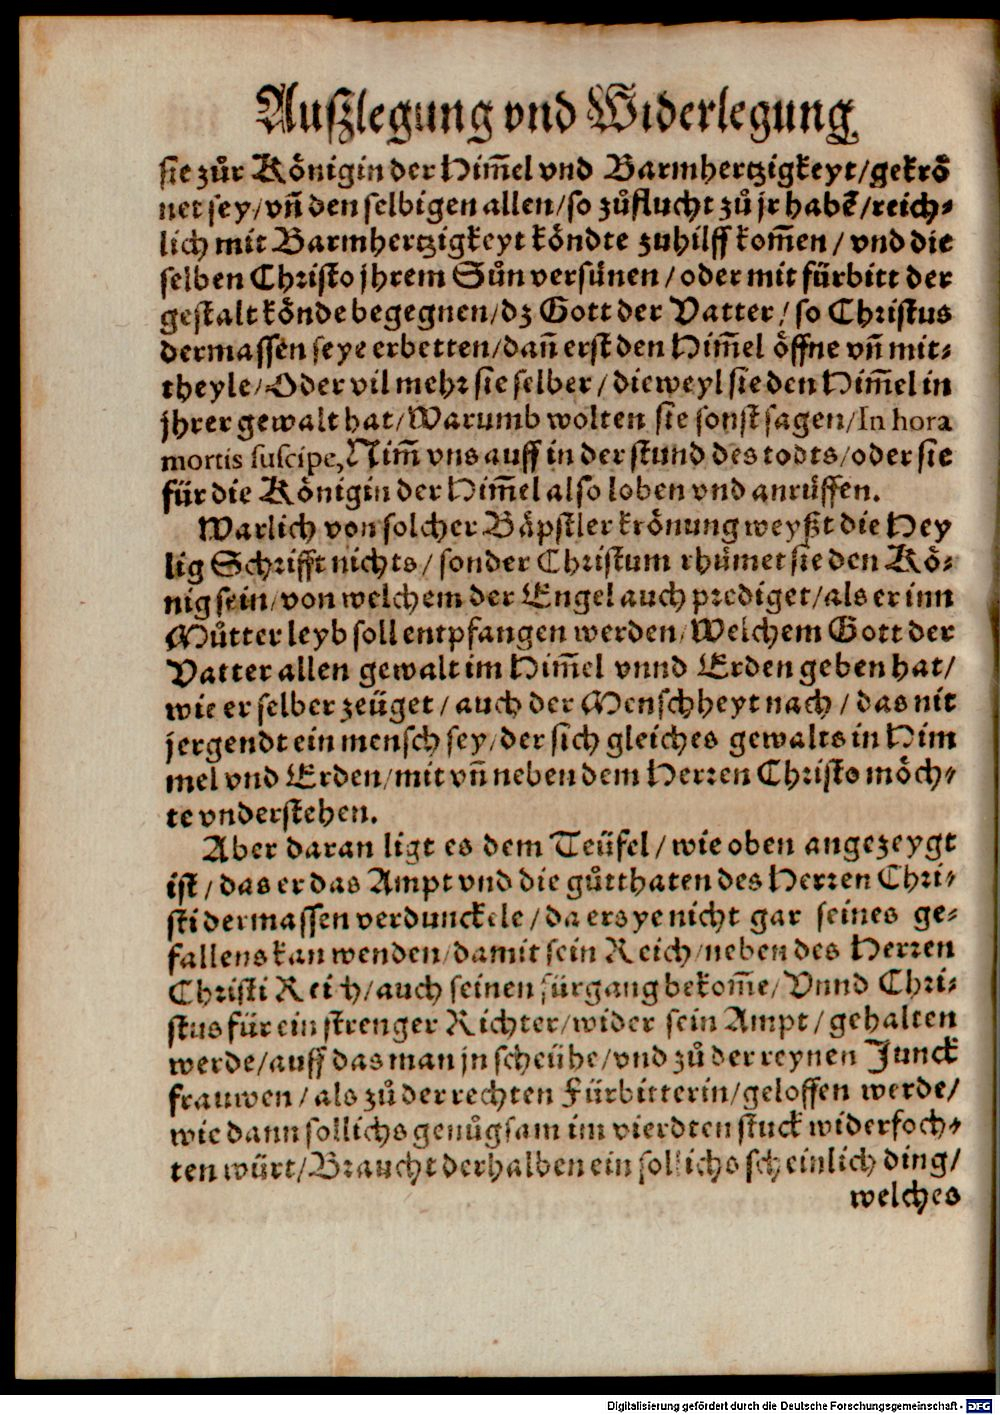 Außlegung vnd Widerlegung
sie zůr Königin der Him̃el vnd Barmhertzigkeyt/gekrö
net sey/vñ den selbigen allen/so zůflucht zů jr habẽ/reich⸗
lich mit Barmhertzigkeyt köndte zuhilff kom̃en/vnd die
selben Christo jhrem Sůn versünen/oder mit fürbitt der
gestalt könde begegnen/dz Gott der Vatter/so Christus
dermassen seye erbetten/dañ erst den Him̃el öffne vñ mit⸗
theyle/Oder vil mehr sie selber/dieweyl sie den Him̃el in
jhrer gewalt hat/Warumb wolten sie sonst sagen/In hora
mortis suscipe, Nim̃ vns auff in der stund des todts/oder sie
für die Königin der Him̃el also loben vnd anrüffen.
Warlich von solcher Bäpstler krönung weyßt die Hey
lig Schrifft nichts/sonder Christum rhümet sie den Kö⸗
nig sein/von welchem der Engel auch prediget/als er inn
Můtter leyb soll entpfangen werden/Welchem Gott der
Vatter allen gewalt im Him̃el vnnd Erden geben hat/
wie er selber zeüget/auch der Menschheyt nach/das nit
jergendt ein mensch sey/der sich gleiches gewalts in Him
mel vnd Erden/mit vñ neben dem Herren Christo möch⸗
te vnderstehen.
Aber daran ligt es dem Teüfel/wie oben angezeygt
ist/das er das Ampt vnd die gůtthaten des Herren Chri⸗
sti dermassen verdunckele/da ers ye nicht gar seines ge⸗
fallens kan wenden/damit sein Reich/neben des Herren
Christi Reich/auch seinen fürgang bekom̃e/Vnnd Chri⸗
stus für ein strenger Richter/wider sein Ampt/gehalten
werde/auff das man jn scheühe/vnd zů der reynen Junck
frauwen/als zů der rechten Fürbitterin/geloffen werde/
wie dann sollichs genůgsam im vierdten stuck widerfoch⸗
ten würt/Braucht derhalben ein sollichs scheinlich ding/
welches
Digitalisierung gefördert durch die Deutsche Forschungsgemeinschaft - DFG